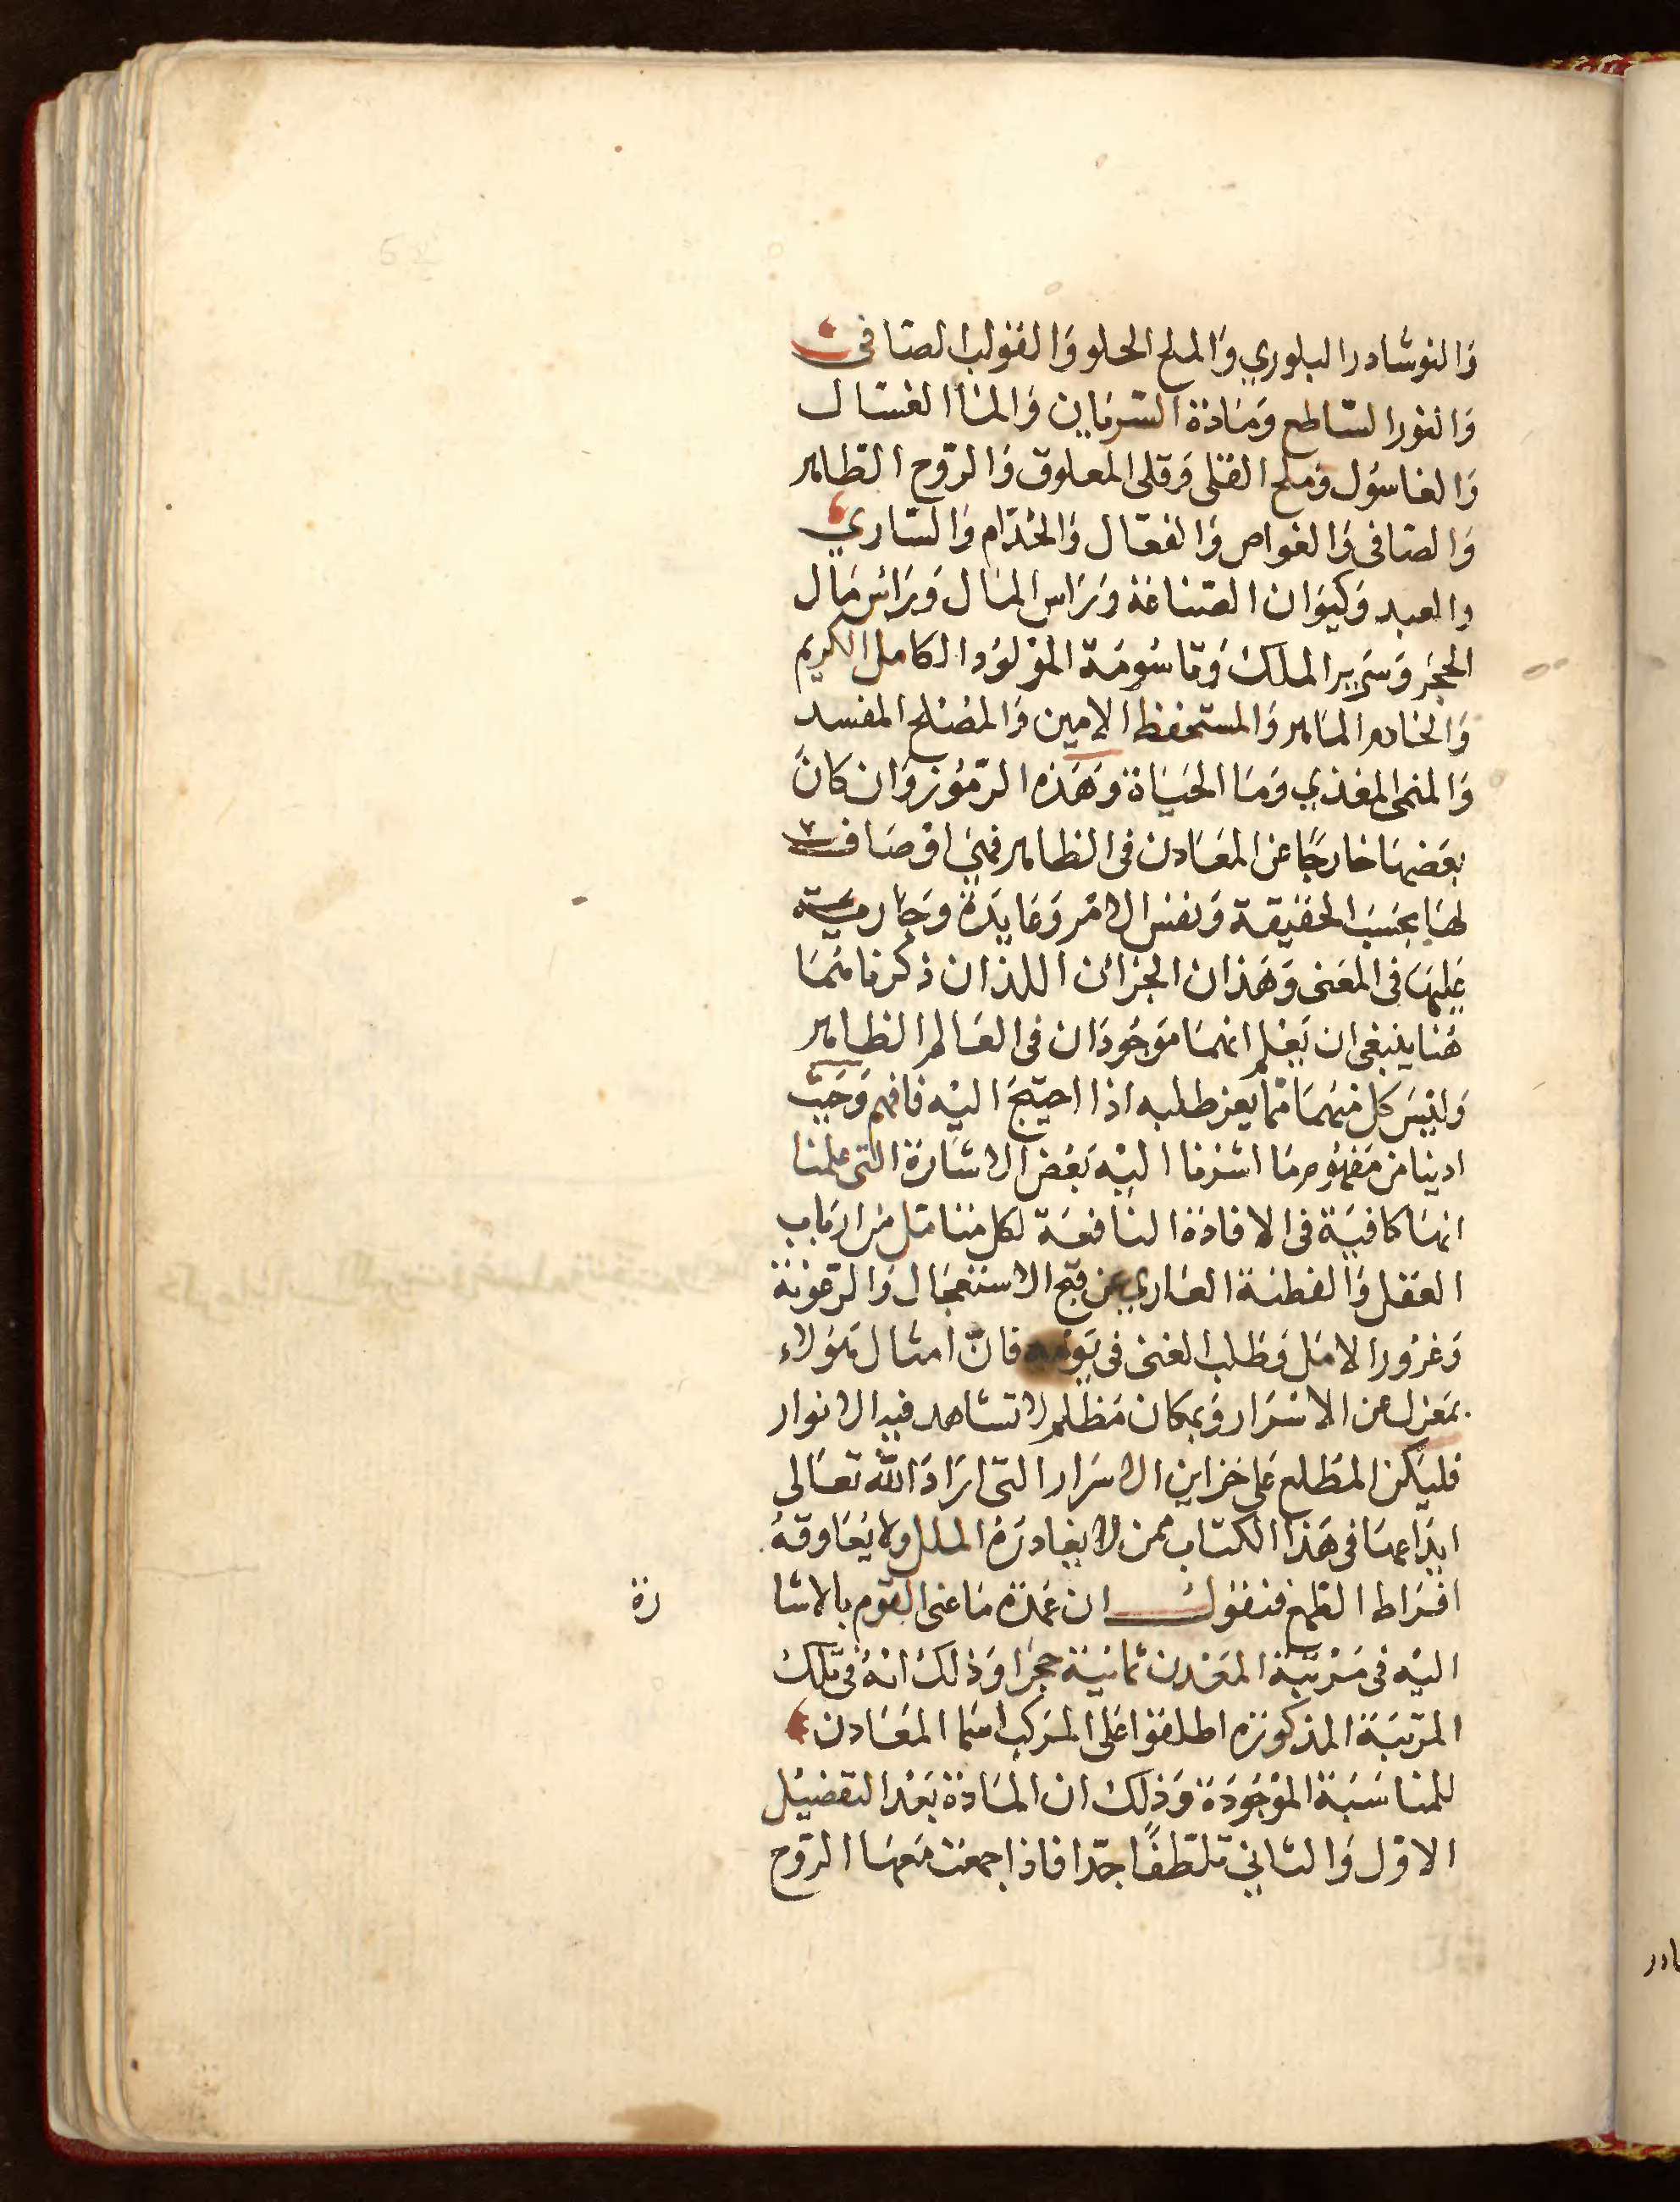 وَالنوشادر البلوري وَالملح الحلو وَالقولب الصافى
وَالنور الساطع وَمَادة السَرمَاين وَالماا الغسّال
وَالغاسُول وَملح القلى وَقلى المعلوق وَالرّوح الطاهر
وَالصَافى وَالغواص وَالفعّال وَالخدّام وَالسّاري
والعبد وَكيوَان الصّناعَة وَرَاس المَال وَرَائس مَال
الحجَر وَسَرير الملك وَقاسُومَة الموْلوُد الكامل الكريم
وَالخادم المَاهر وَالمستحفظ الامين وَالمصْلح المفسد
وَالمنمى المغذي وَمَا الحيَاة وَهَذه الرّمُوز وَان كانَ
بعَضهَا خارجًا عن المعَادن فى الظاهر فهيَ اوصَاف
لهَا بحسَب الحَقيقة وَنفس الامْر وَعَايدَة وَجَارِية
عَليهَا فى المعَنى وَهَذان الجزائن اللذان ذكرنا مَهمَا
هُنا ينبغى ان يَعْلم انهمَا مَوجُودَان فى العَالم الظاهر
وَليسَ كل منهمَا ممّا يعز طلبه اذا احتيجَ اليْه فافهم وَحَيث
ادينا من مَفهُوم مَا اشرْنا اليْه بَعْض الاشارَة التى علمنا
انهَا كافيَة فى الافادَة النافعَة لكل متنا مّل من ارباب
العَقل وَالفطنَة العَاري عن قبح الاستعجَال وَالرّعُونَة
وَغرُور الامَل وَطلب الغنى فى يَومه فانّ امثال هَؤلاء
بمَعزل عن الاسْرَار وَبمكان مَظلم لا تشاهد فيه الانوار
فليَكن المطّلع عَلى خزاين الاسَرار التى ارَادَ الله تعَالى
ايدَاعهَا فى هَذا الكتاب ممن لا يغادرَهُ الملل ولا يُعَاوقهُ
افرَاط الطمَع فنقول ان عمدَة مَا عَنى القوم بالاشا
رة
اليْه فى مَرْتبَة المعَدن ثانيَة حجَرا وَذلك انهُ فى تلك
المرْتبَة المذكورَه اطلقوا عَلى المركب اسَما المعَادن
للمناسَبَة الموْجُودَة وَذلك ان المَادة بَعْد التفضيْل
الاوّل وَالثانى تلطّفًا جدّا فاذا جمعَت مَعهَا الرّوح
ادر